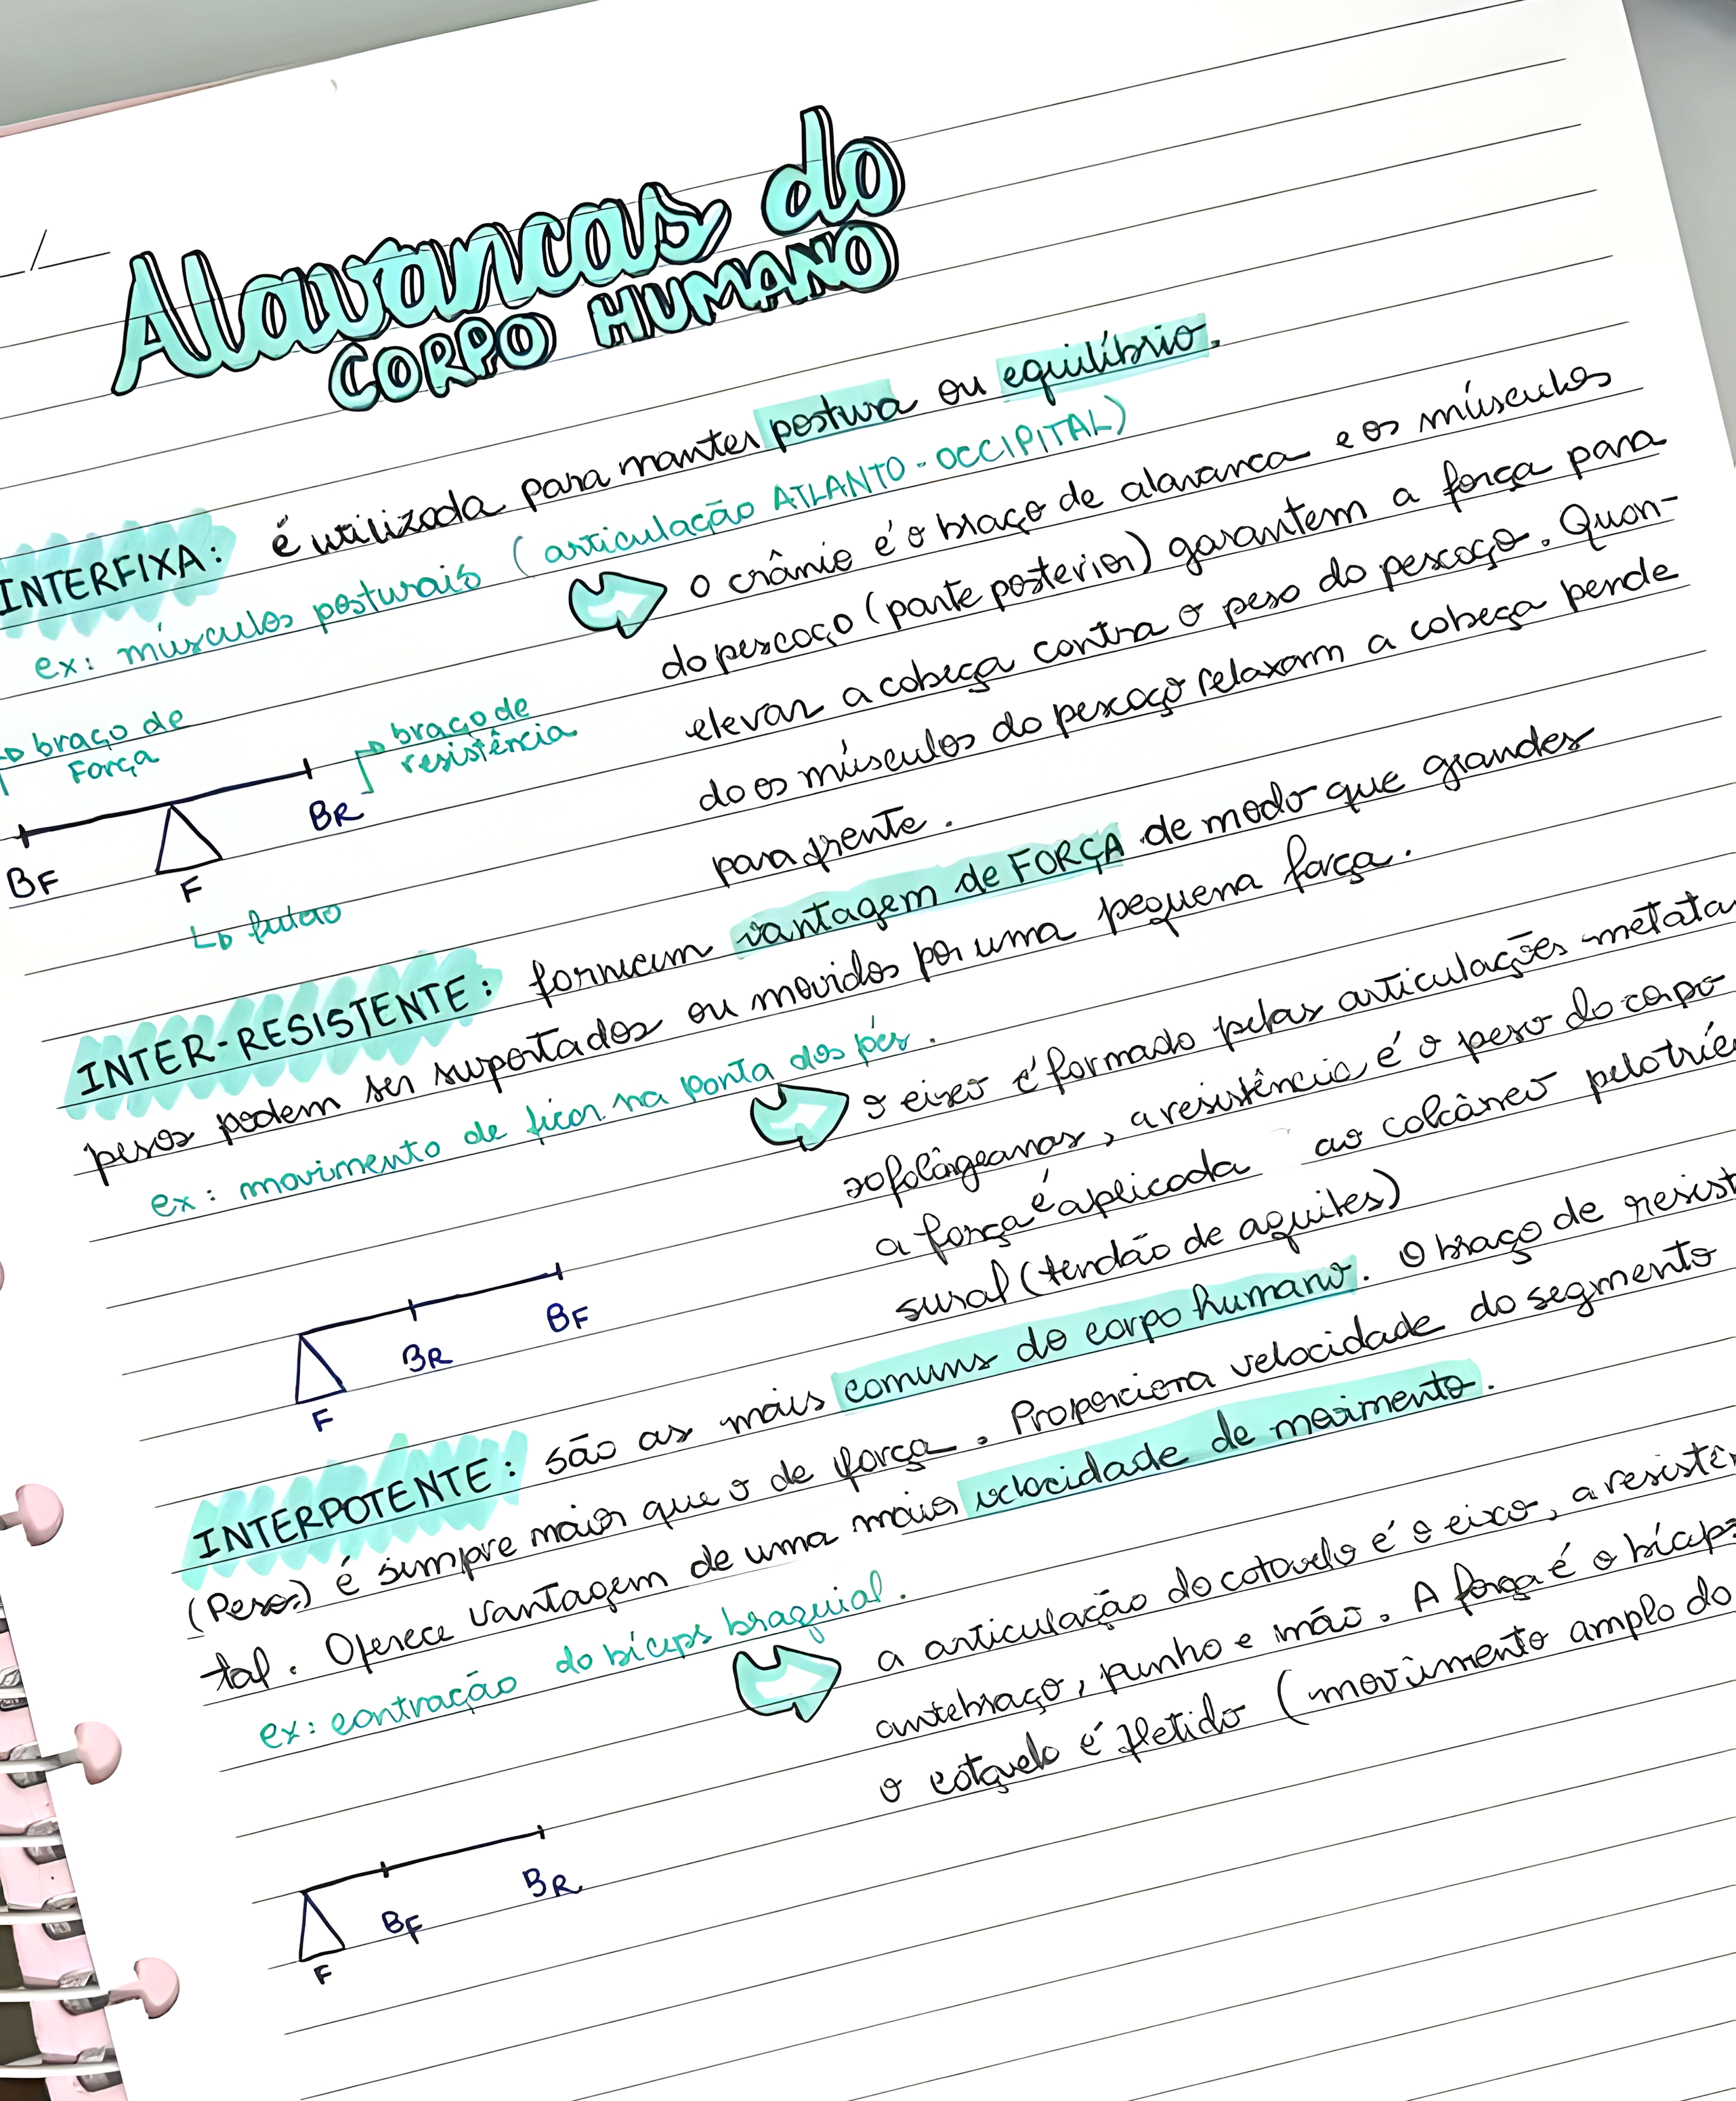 Alavancas do
CORPO HUMANO
INTERFIXA: é utilizada para manter postura ou equilíbrio.
ex: músculos posturais (articulação ATLANTO-OCCIPITAL)
o crânio é o braço de alavanca e os músculos
do pescoço (parte posterior) garantem a força para
elevar a cabeça contra o peso do pescoço. Quan-
do os músculos do pescoço relaxam a cabeça pende
para frente.
braço de
Força
braço de
resistência
BF
F
BR
INTER-RESISTENTE: fornecem vantagem de FORÇA de modo que grandes
pesos podem ser suportados ou movidos por uma pequena força.
ex: movimento de ficar na ponta dos pés.
o eixo é formado pelas articulações metatar
sofalângeanas, a resistência é o peso do corpo
a força é aplicada ao calcâneo pelo tríc
sural (tendão de aquiles)
F
BR
BF
INTERPOTENTE: são as mais comuns do corpo humano. O braço de resist
(Peso) é sempre maior que o de força. Proporciona velocidade do segmento
tal. Oferece vantagem de uma maior velocidade de movimento.
ex: contração do bíceps braquial.
a articulação do cotovelo é o eixo, a resistên
antebraço, punho e mão. A força é o bíceps
o cotovelo é fletido (movimento amplo do
F
BF
BR